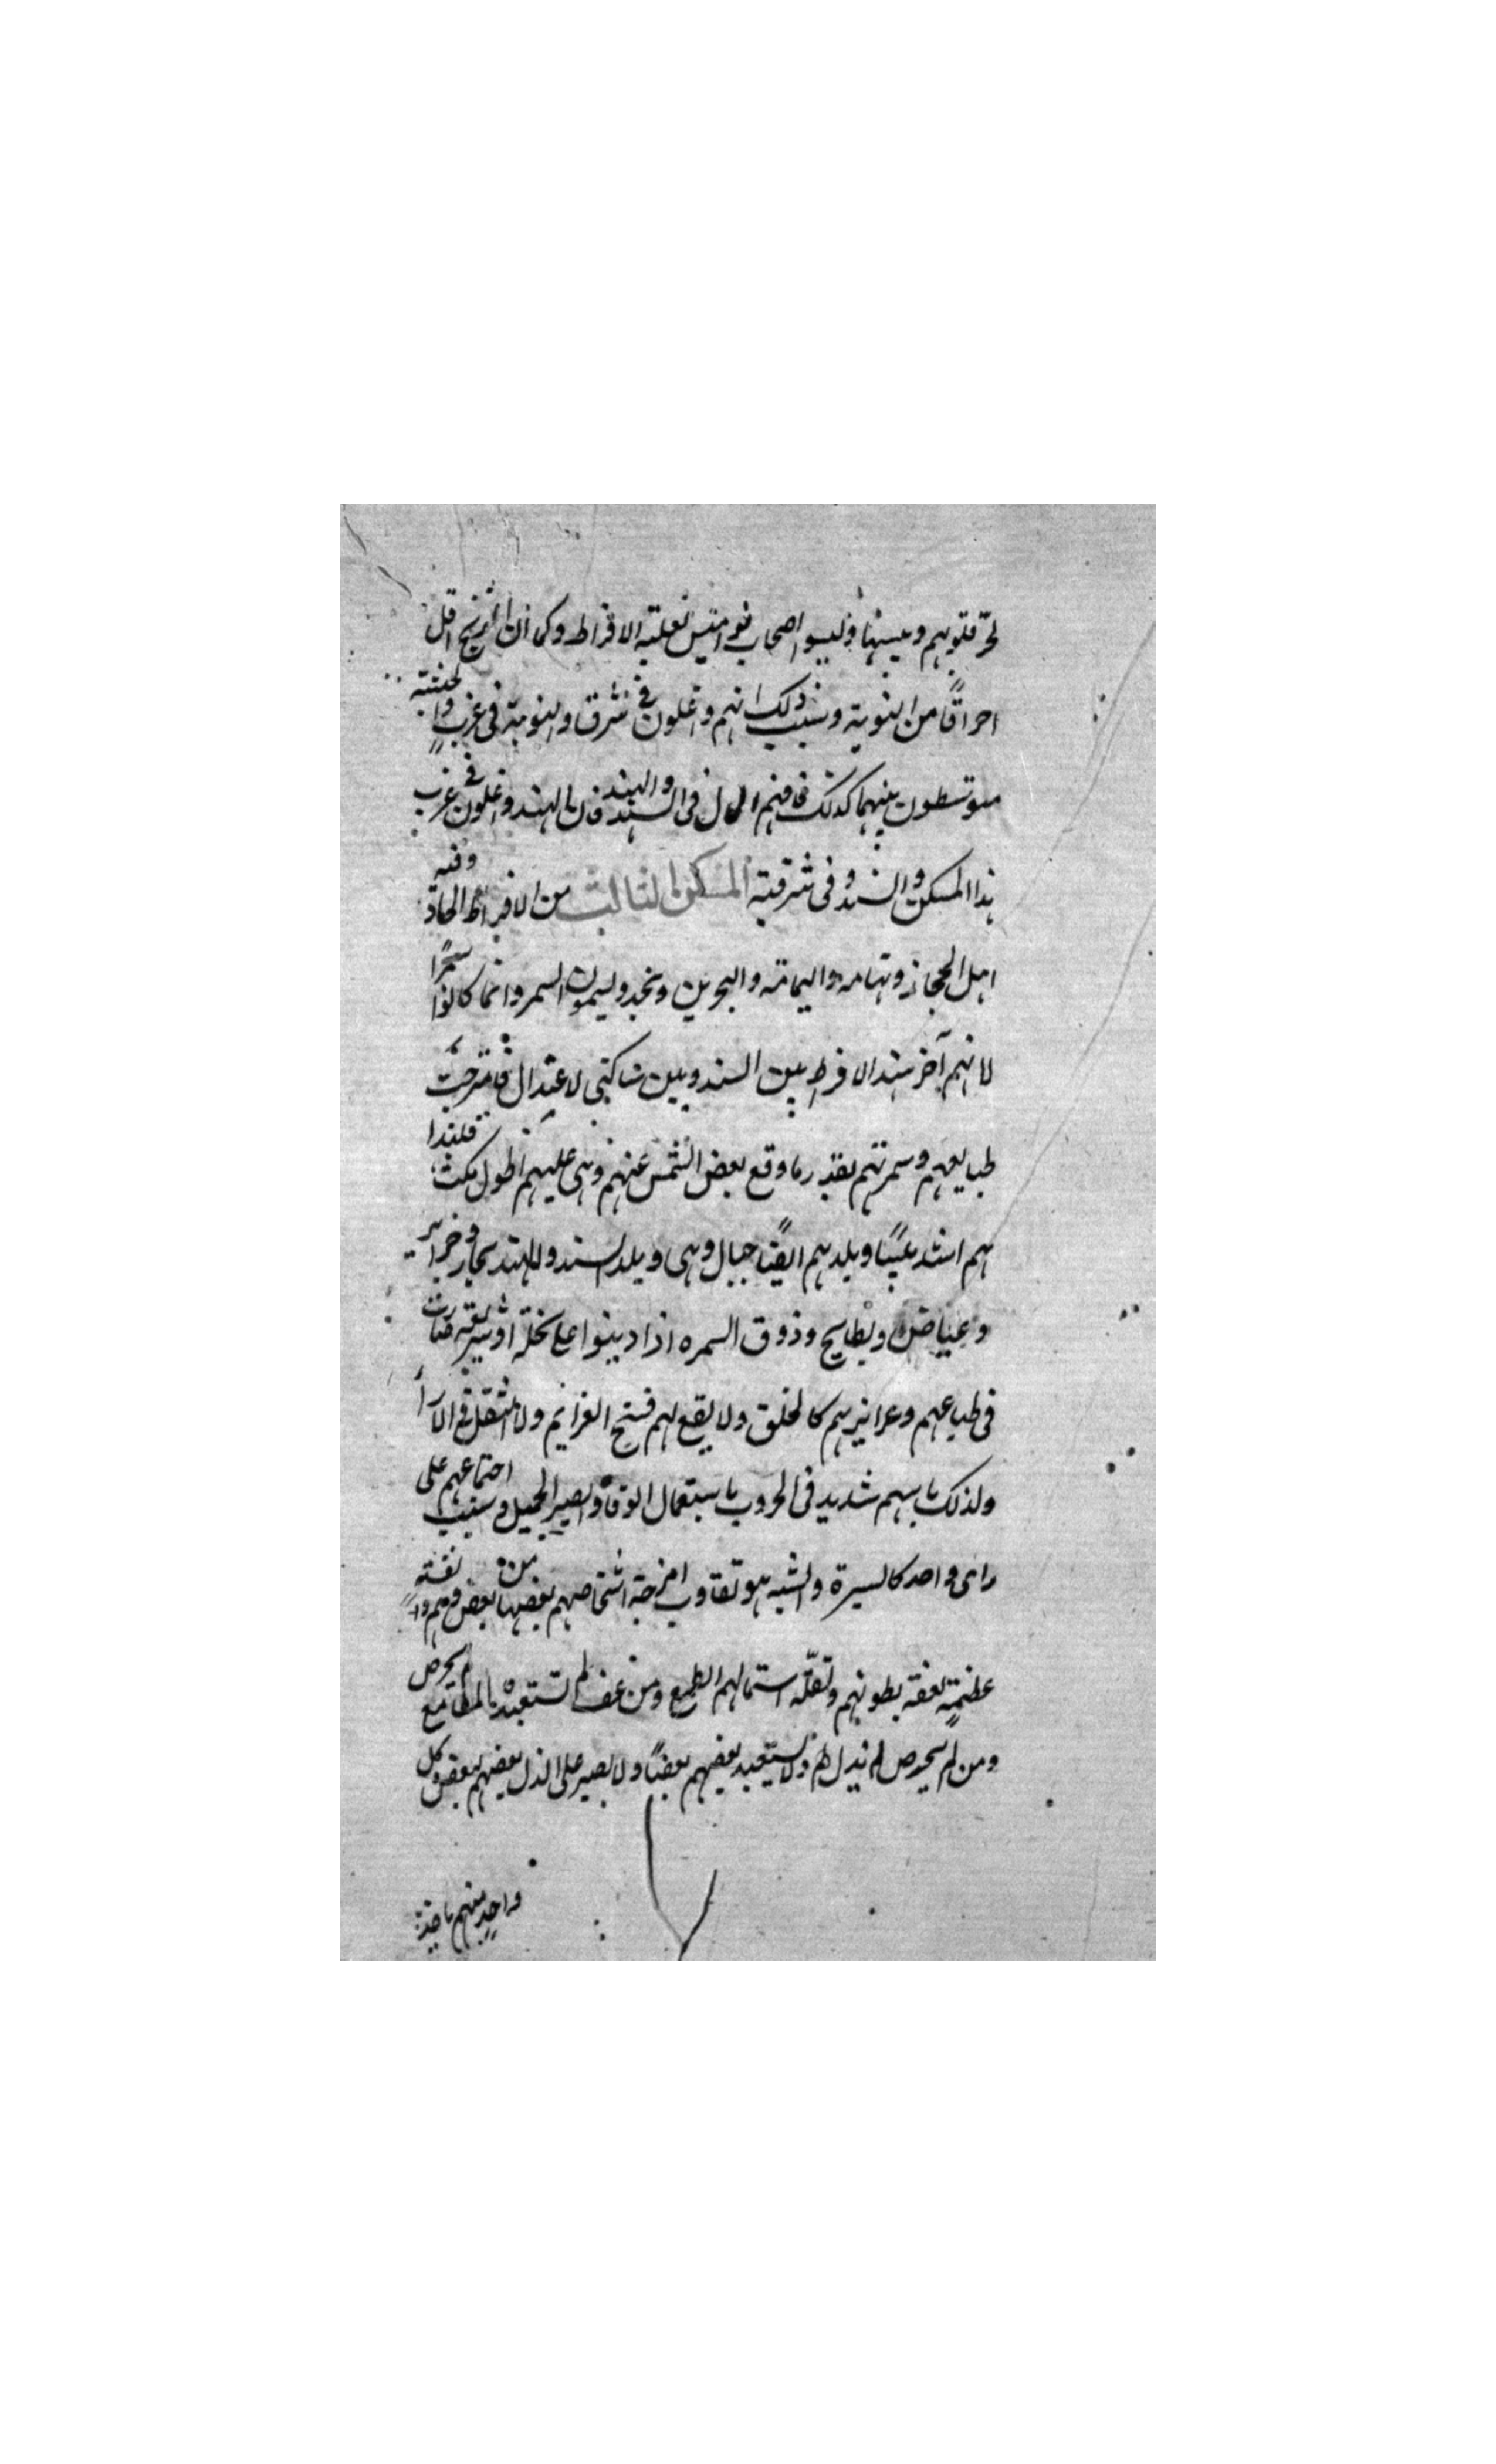 لحرّ قلوبهم ويبسها وليسوا اصحاب نواميس لغلبة الافراط وكما ان الزنج اقل
احراقًا من النوبة وسبب ذلك انهم واغلون فى شرق والنوبة فى غرب والحبشة
متوسطون بينهما كذلك فافهم الحال فى السند والهند فان الهند واغلون فى غرب
هذا المسكن والسند فى شرقية المسكن الثالث من الافراط الحار وفيه
اهل الحجاز وتهامه واليمامة والبحرين ونجد ويسمون السمر وانما كانوا سمرًا
لانهم آخر هذا الافراط بين السند وبين ساكنى الاعتدال فامتزجت
طبايعهم وسمرتهم بقدر ما وقع بعض الشمس عنهم وهى عليهم اطول مكث فلهذا
هم اشد يبسًا وبلدهم ايضًا جبال وهى وبلد السند والهند بحار وجزاير
وغياض وبطايح وذوق السمره اذا دبنوا على نحلة او شريعة صارت
فى طباعهم وغرايزهم كالخلق ولا يقع لهم فسخ العزايم ولا التنقل فى الآراء
ولذلك باسهم شديد فى الحروب باستعمال الوفاء والصبر الجميل وسبب اجتماعهم على
راى واحد كالسيرة والشبه هو تقارب امزجة اشخاصهم بعضها من بعض ولهم نفسه
عظيمة لعفة بطونهم ولقلة استمالهم الطمع ومن عف لم تستعبده المطامع لم يحرص
ومن لم يحرص لم يذل لهم ولا يستعبد بعضهم بعضًا ولا يصبر على الذل بعضهم لبعض وكل
واحد منهم ياخذ